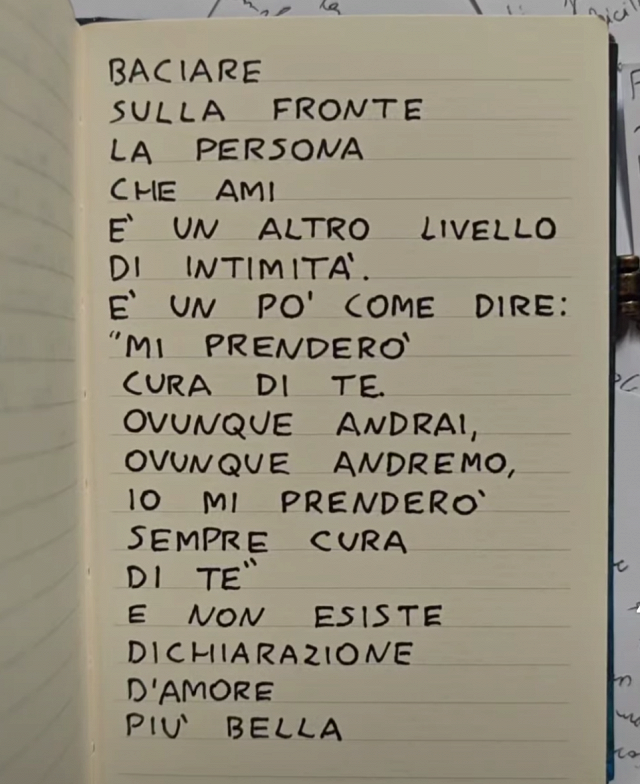 BACIARE
SULLA FRONTE
LA PERSONA
CHE AMI
E' UN ALTRO LIVELLO
DI INTIMITA'.
E' UN PO' COME DIRE:
"MI PRENDERO'
CURA DI TE.
OVUNQUE ANDRAI,
OVUNQUE ANDREMO,
IO MI PRENDERO'
SEMPRE CURA
DI TE"
E NON ESISTE
DICHIARAZIONE
D'AMORE
PIU' BELLA